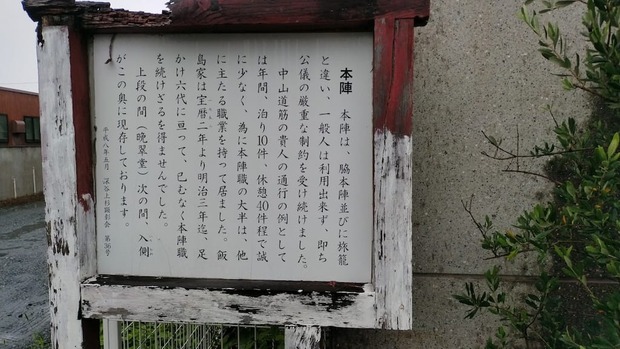 本陣 本陣は、脇本陣並びに旅籠
と違い、一般人は利用出来ず、即ち
公儀の厳重な制約を受け続けました。
中山道筋の貴人の通行の例として
は年間、泊り10件、休憩40件程で誠
に少なく、為に本陣職の大半は、他
に主たる職業を持って居ました。飯
島家は宝暦二年より明治三年迄、足
かけ六代に亘って、已むなく本陣職
を続けざるを得ませんでした。
上段の間(晩翠堂)次の間、入側
がこの奥に現存しております。
平成八年五月 深谷上杉顕彰会 第36号